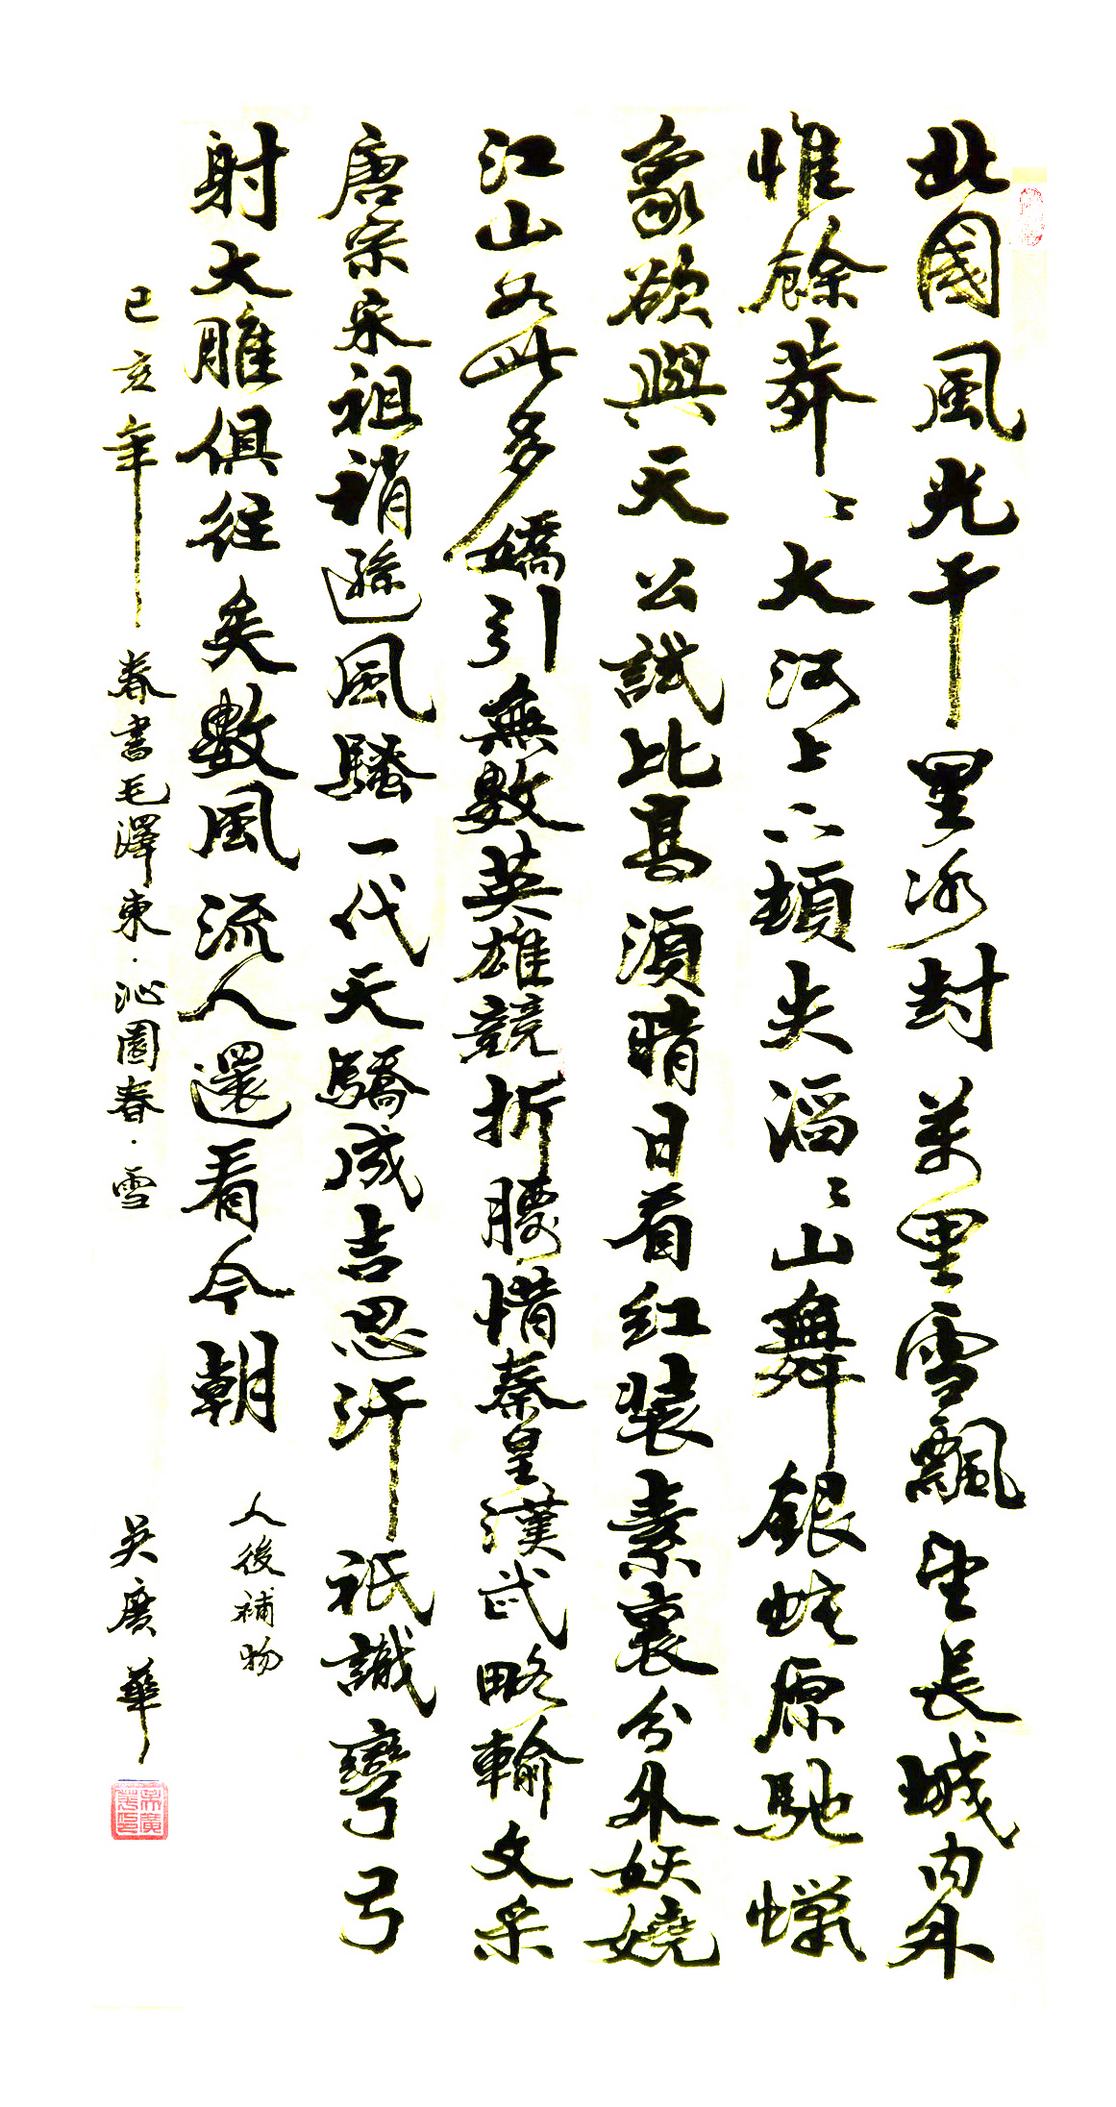 北國風光千里冰封萬里雪飄望長城內外
惟餘莽〻大河上下頓失滔〻山舞銀蛇原馳蠟
象欲與天公試比高須晴日看红装素裹分外妖嬈
江山如此多嬌引無數英雄競折腰惜秦皇漢武略輸文采
唐宗宋祖稍遜風騷一代天驕成吉思汗祇識彎弓
射大雕俱往矣數風流人還看今朝
人後補物
己亥年春書毛澤東·沁園春·雪
吴廣華
吴廣華印